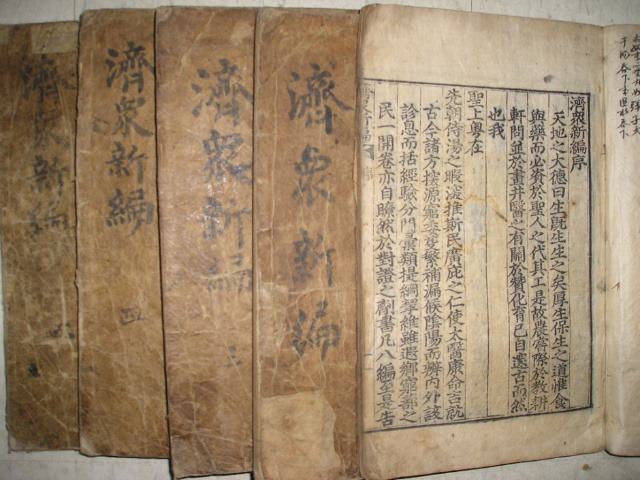 濟衆新編序
天地之大德曰生旣生生之矣厚生保生之道惟食
與藥而必資於聖人之代其工是故農齊際於敎耕
軒問並於畫井醫之有關於贊化育已自邃古而然
也我
聖上粤在
先朝侍湯之暇深推斯民廣庇之仁使太醫康命吉就
古今諸方探源窮委芟繁補漏候陰陽而辨內外該
診息而括經驗分門彙類提綱挈維雖遐鄕窮蔀之
民一開卷亦自瞭然於對證之劑書凡八編至是告
濟衆新編
濟衆新編 三
濟衆新編 四
濟衆新編